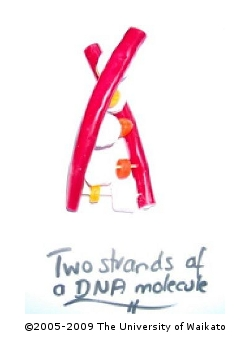 Two strands of
a DNA molecule
©2005-2009 The University of Waikato